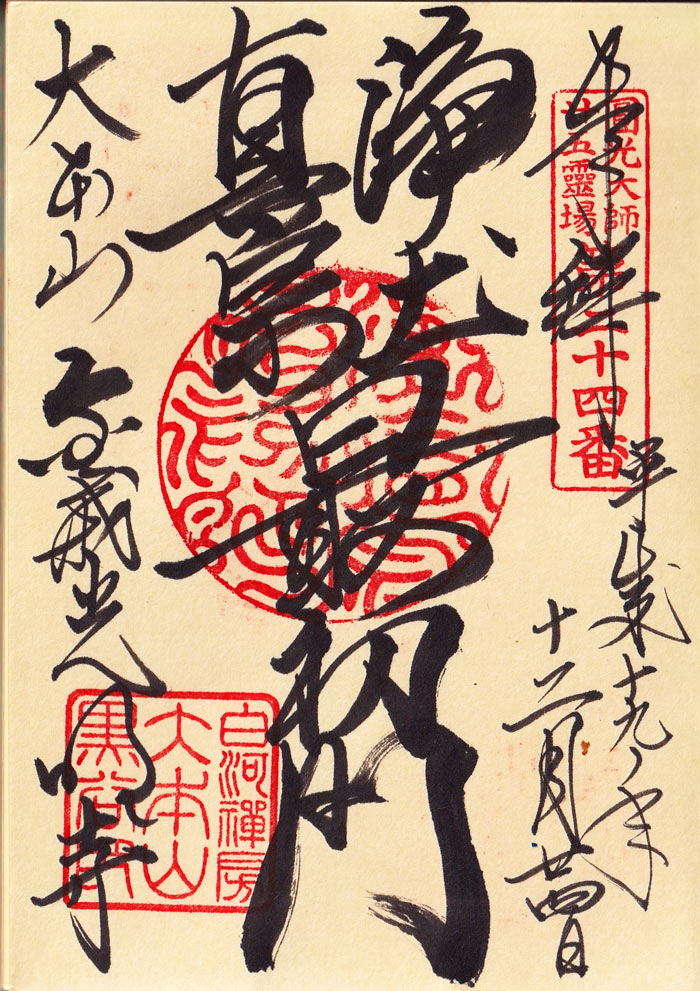 奉拝
圓光大師
廿五靈場
第二十四番
平成十九年
十二月廿四日
淨土
真宗
最初門
大本山 金戒光明寺
白河禪房
大本山
黒谷